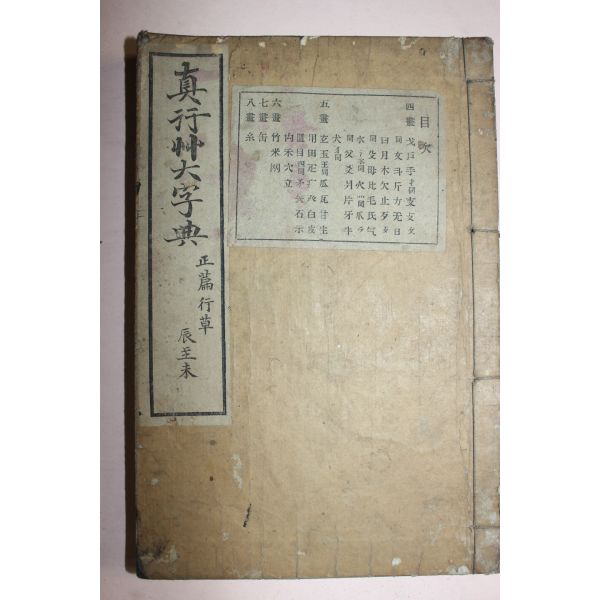 真行艸大字典
正篇行草
辰至未
目次
四畫
戈戶手支攴文
斗斤方无日
曰月木欠止歹
殳毋比毛氏气
水火爪
父爻爿片牙牛
犬
五畫
玄玉瓜瓦甘生
用田疋疒癶白皮
皿目矛矢石示
禸禾穴立
六畫
竹米网
七畫
缶
八畫
糸